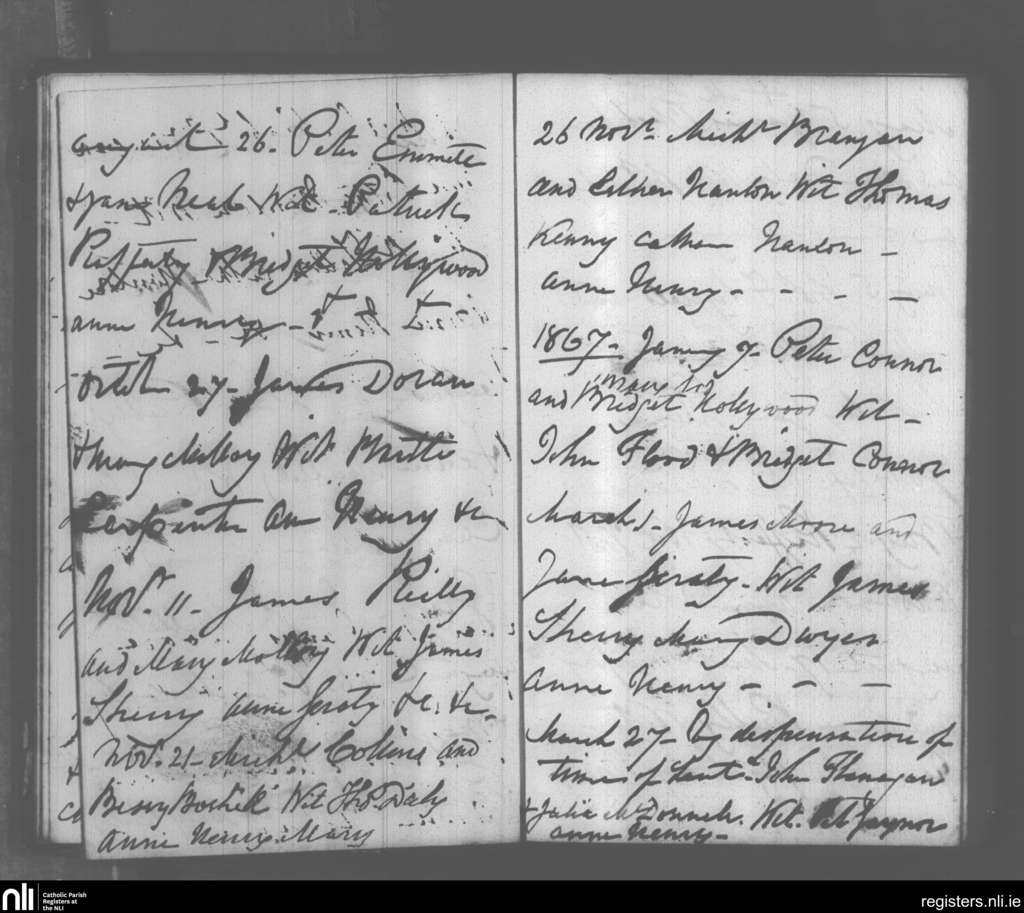 august 26. Peter Emmette
& Jane Neal Wit. Patrick
Rafferty & Bridget Hollywood
anne Henry - & &
27 - James Doran
& mary Wit
Carpenter ann Henry &c
Nov.r 11 - James Reilly
and Mary Wit James
Sherry anne Geraty &c. &c.
Nov.r 21 - Mich.l Collins and
Bessy Wit Tho.s Daly
Anne Henry. Mary
26 Nov.r Mich.l Brangan
and Esther Hanlon Wit Thomas
Kenny Hanlon -
anne Henry - - - -
1867 - Jany 7 - Peter Connor
Mary
and Bridget Hollywood Wit -
John Flood & Bridget Connor
March 1 - James Moore and
Jane Geraty - Wit James
Sherry Mary Dwyer
anne Henry - - -
March 27 - By dispensation of
time of Lent - John Flanagan
& Julia McDonnell. Wit. Pat Gaynor
anne Henry -
nli
Catholic Parish
Registers at
the NLI
registers.nli.ie